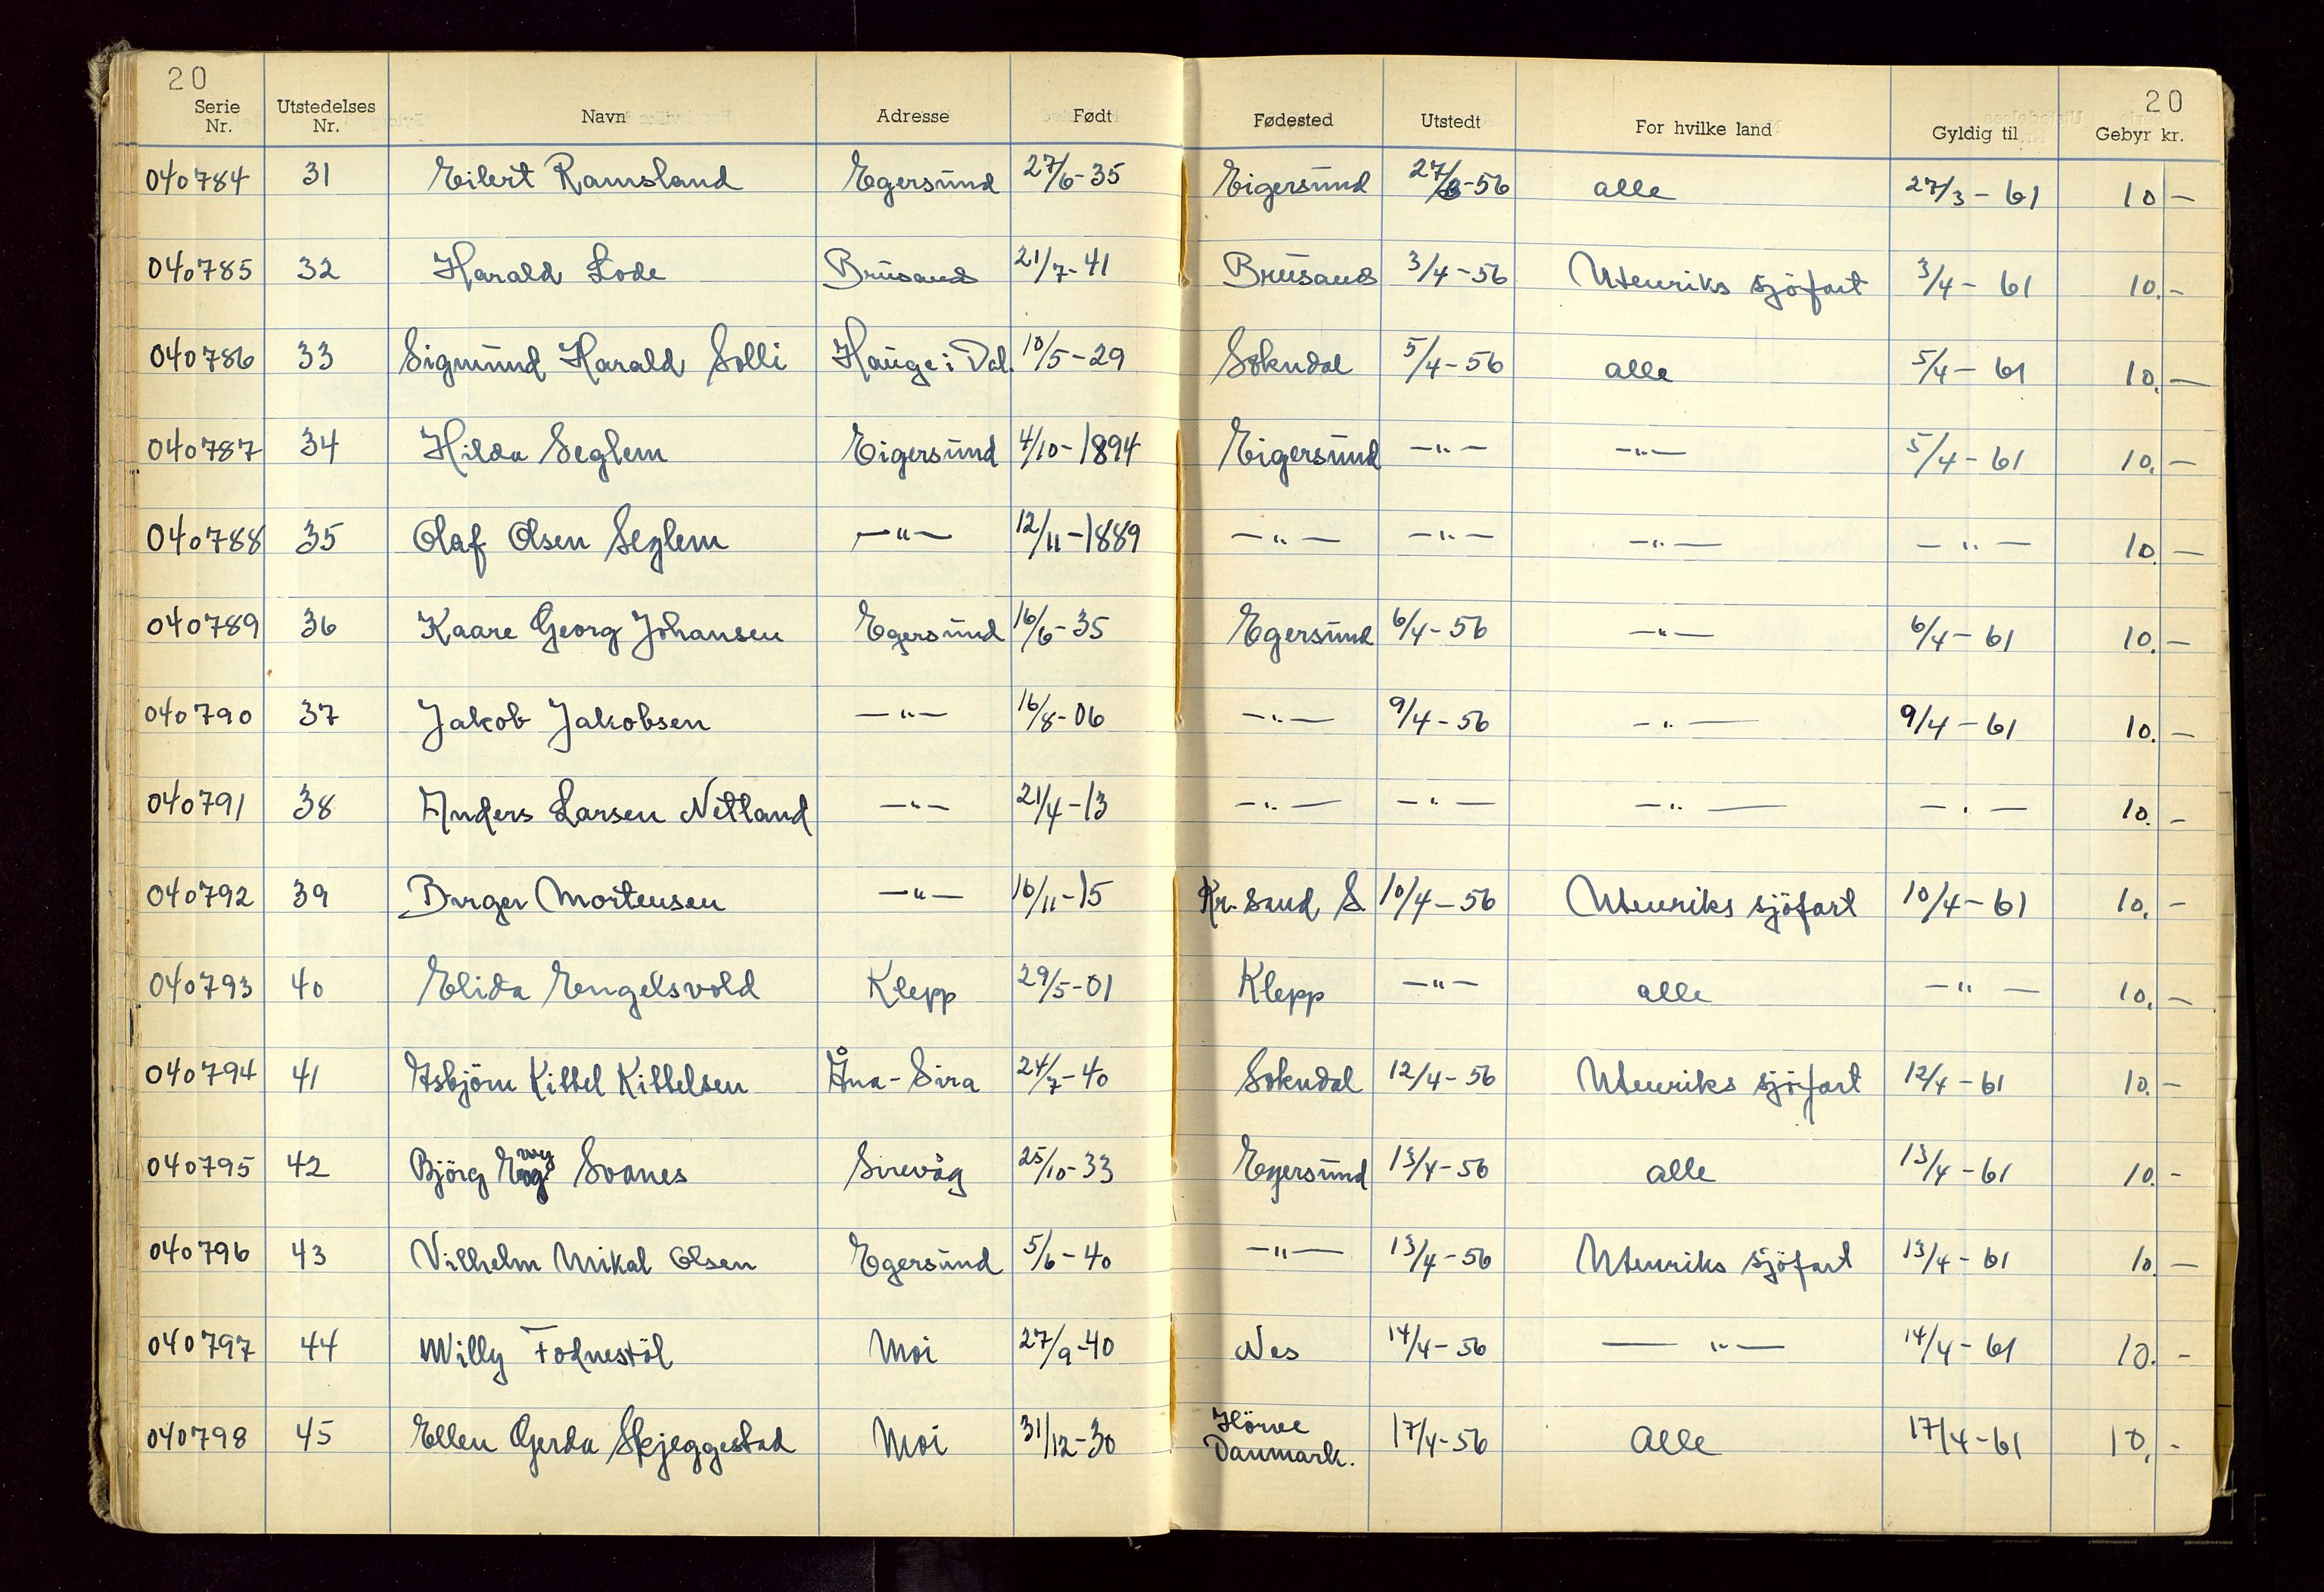 20 20
Serie Nr. Utstedelses Nr. Navn Adresse Født Fødested Utstedt For hvilke land Gyldig til Gebyr kr.
040784 31 Eilert Ramsland Egersund 27/6-35 Eigersund 27/3-56 alle 27/3-61 10 -
040785 32 Harald Lode Brusand 21/7-41 Brusand 3/4-56 Utenriks sjöfart 3/4-61 10.-
040786 33 Sigmund Harald Solli Hauge i Dal. 10/5-29 Sokndal 5/4-56 alle 5/4-61 10.-
040787 34 Hilda Seglem Eigersund 4/10-1894 Eigersund -"- -"- 5/4-61 10.-
040788 35 Olaf Olsen Seglem -"- 12/11-1889 -"- -"- -"- -"- 10.-
040789 36 Kaare Georg Johansen Egersund 16/6-35 Egersund 6/4-56 -"- 6/4-61 10.-
040790 37 Jakob Jakobsen -"- 16/8-06 -"- 9/4-56 -"- 9/4-61 10.-
040791 38 Anders Larsen Netland -"- 21/4-13 -"- -"- -"- -"- 10.-
040792 39 Birger Mortensen -"- 16/11-15 Kr.sand S. 10/4-56 Utenriks sjöfart 10/4-61 10.-
040793 40 Elida Engelsvold Klepp 29/5-01 Klepp -"- alle -"- 10.-
040794 41 Asbjörn Kittel Kittelsen Åna-Sira 24/7-40 Sokndal 12/4-56 Utenriks sjöfart 12/4-61 10.-
040795 42 Björg Svanes Sirevåg 25/10-33 Egersund 13/4-56 alle 13/4-61 10.-
040796 43 Vilhelm Mikal Olsen Egersund 5/6-40 -"- 13/4-56 Utenriks sjöfart 13/4-61 10.-
040797 44 Willy Fodnestöl Moi 27/9-40 Nes 14/4-56 -"- 14/4-61 10.-
040798 45 Ellen Gerda Skjeggestad Moi 31/12-30 Hörve Danmark. 17/4-56 Alle 17/4-61 10.-